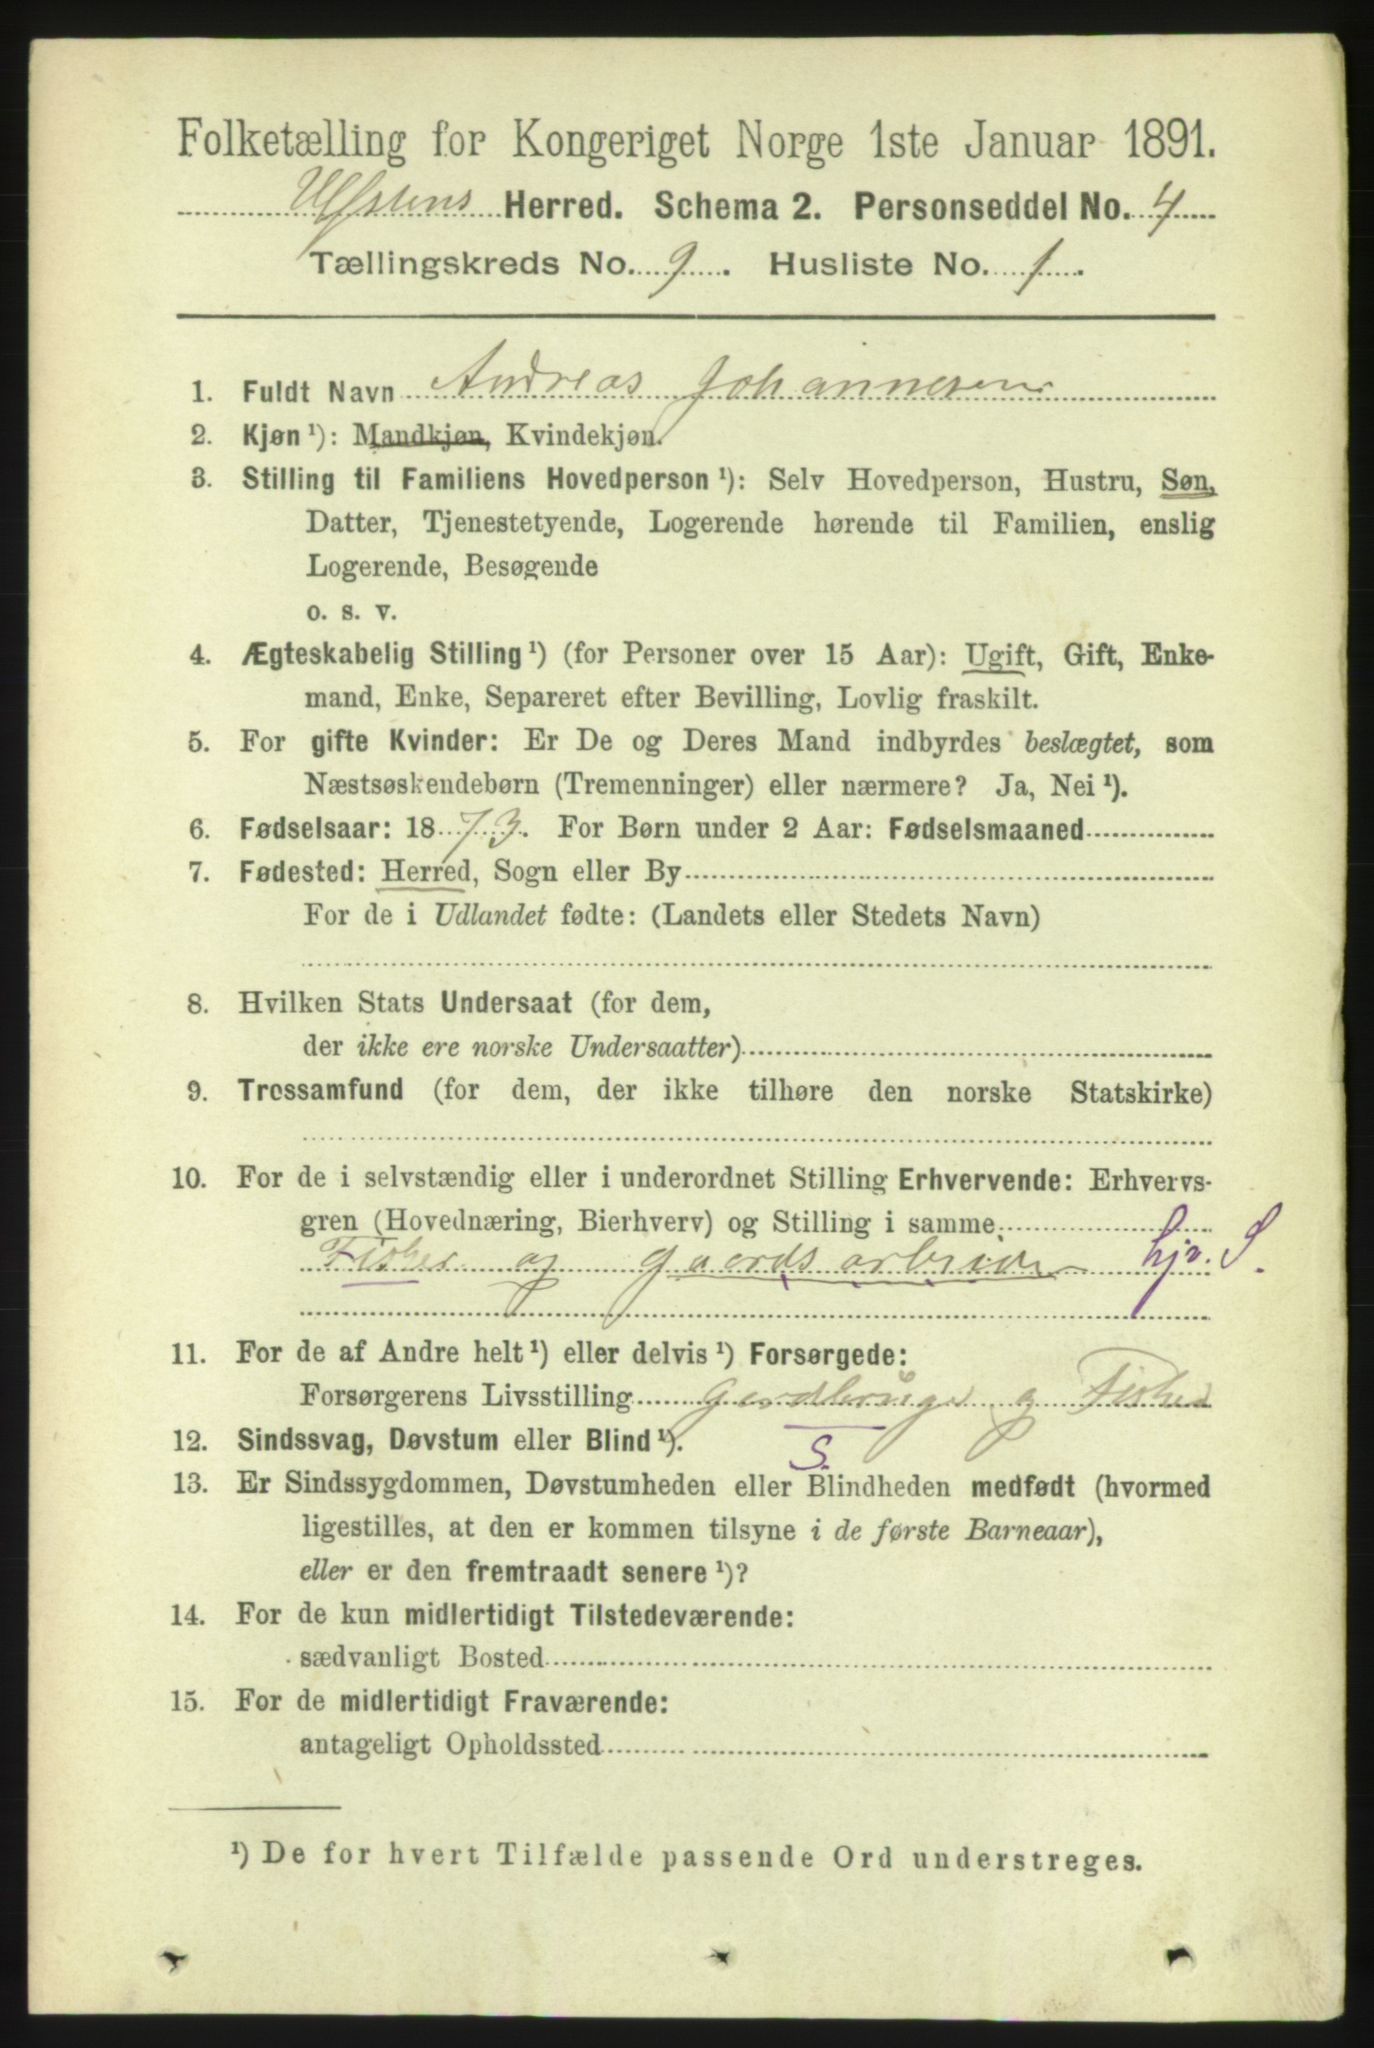 Folketælling for Kongeriget Norge 1ste Januar 1891.
Utstens Herred. Schema 2. Personseddel No. 4
Tællingskreds No. 9. Husliste No. 1.
1. Fuldt Navn Andreas Johannesen
2. Kjøn ¹): Mandkjøn, Kvindekjøn.
3. Stilling til Familiens Hovedperson ¹): Selv Hovedperson, Hustru, Søn,
Datter, Tjenestetyende, Logerende hørende til Familien, enslig
Logerende, Besøgende
o. s. v.
4. Ægteskabelig Stilling ¹) (for Personer over 15 Aar): Ugift, Gift, Enke-
mand, Enke, Separeret efter Bevilling, Lovlig fraskilt.
5. For gifte Kvinder: Er De og Deres Mand indbyrdes beslægtet, som
Næstsøskendebørn (Tremenninger) eller nærmere? Ja, Nei ¹).
6. Fødselsaar: 1873. For Børn under 2 Aar: Fødselsmaaned
7. Fødested: Herred, Sogn eller By
For de i Udlandet fødte: (Landets eller Stedets Navn)
8. Hvilken Stats Undersaat (for dem,
der ikke ere norske Undersaatter)
9. Trossamfund (for dem, der ikke tilhøre den norske Statskirke)
10. For de i selvstændig eller i underordnet Stilling Erhvervende: Erhvervs-
gren (Hovednæring, Bierhverv) og Stilling i samme
Fisker og gaardsarbeider hjv. S.
11. For de af Andre helt ¹) eller delvis ¹) Forsørgede:
Forsørgerens Livsstilling Gardbruger og Fisker
12. Sindssvag, Døvstum eller Blind ¹). S.
13. Er Sindssygdommen, Døvstumheden eller Blindheden medfødt (hvormed
ligestilles, at den er kommen tilsyne i de første Barneaar),
eller er den fremtraadt senere ¹)?
14. For de kun midlertidigt Tilstedeværende:
sædvanligt Bosted
15. For de midlertidigt Fraværende:
antageligt Opholdssted
¹) De for hvert Tilfælde passende Ord understreges.